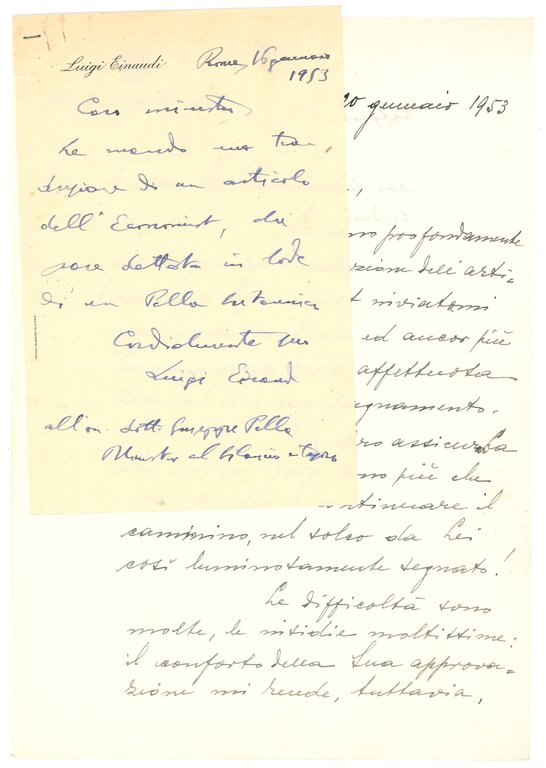 Luigi Einaudi
Roma, 16 gennaio
1953
Caro ministro,
Le mando una tra-
duzione di un articolo
dell'Economist, che
pare dettata in lode
di un Pella britannico
Cordialmente suo
Luigi Einaudi
all'on. dott. Giuseppe Pella
Ministro al bilancio e tesoro
20 gennaio 1953
profondamente
zione dell'arti-
inviatomi
ed ancor più
affettuosa
gnamento.
assicurarLa
più che
ntinuare il
cammino, nel solco da Lei
così luminosamente segnato!
Le difficoltà sono
molte, le insidie moltissime:
il conforto della Sua approva-
zione mi rende, tuttavia,